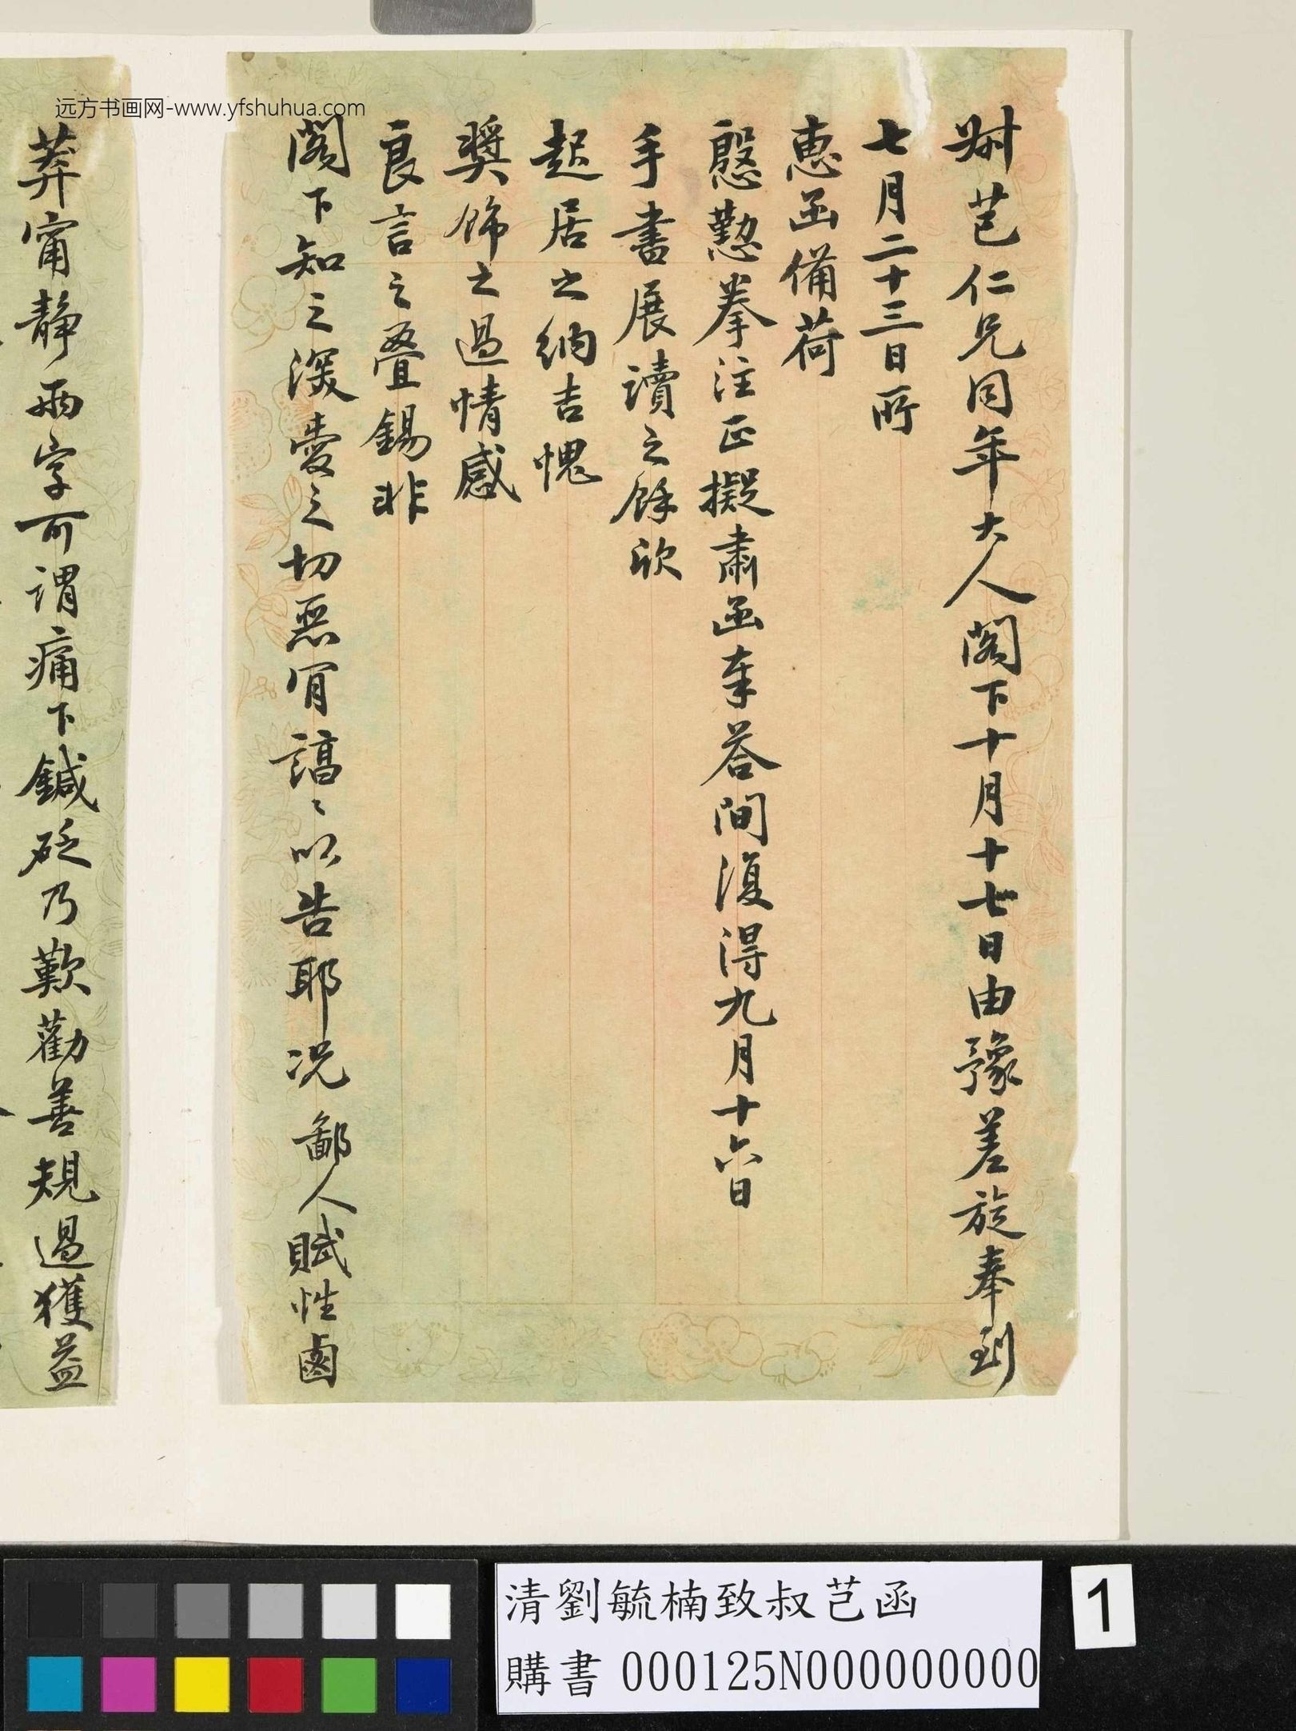 远方书画网-www.yfshuhua.com
尗芑仁兄同年大人閣下十月十七日由豫差旋奉到
七月二十三日所
惠函備荷
慇懃拳注正擬肅函奉荅間復得九月十六日
手書展讀之餘欣
起居之納吉愧
奬飾之過情感
良言之疊錫非
閣下知之深愛之切惡肎謞〻以告耶況鄙人賦性鹵
莽甯静兩字可謂痛下鍼砭乃歎勸善規過獲益
清劉毓楠致叔芑函
購書 000125N000000000
1